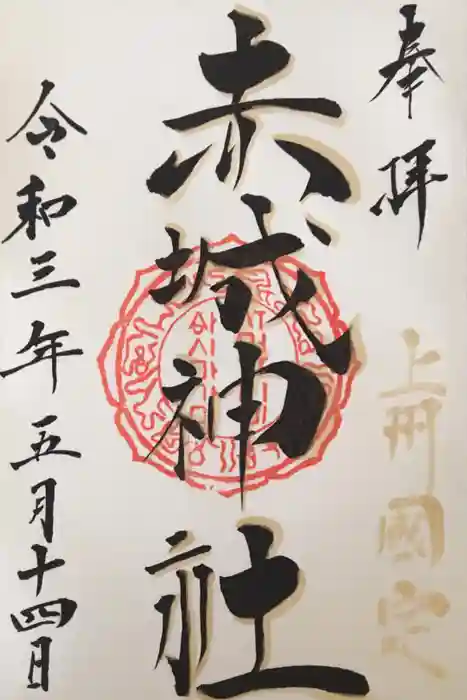 奉拝
上州國定
赤城神社
令和三年五月十四日